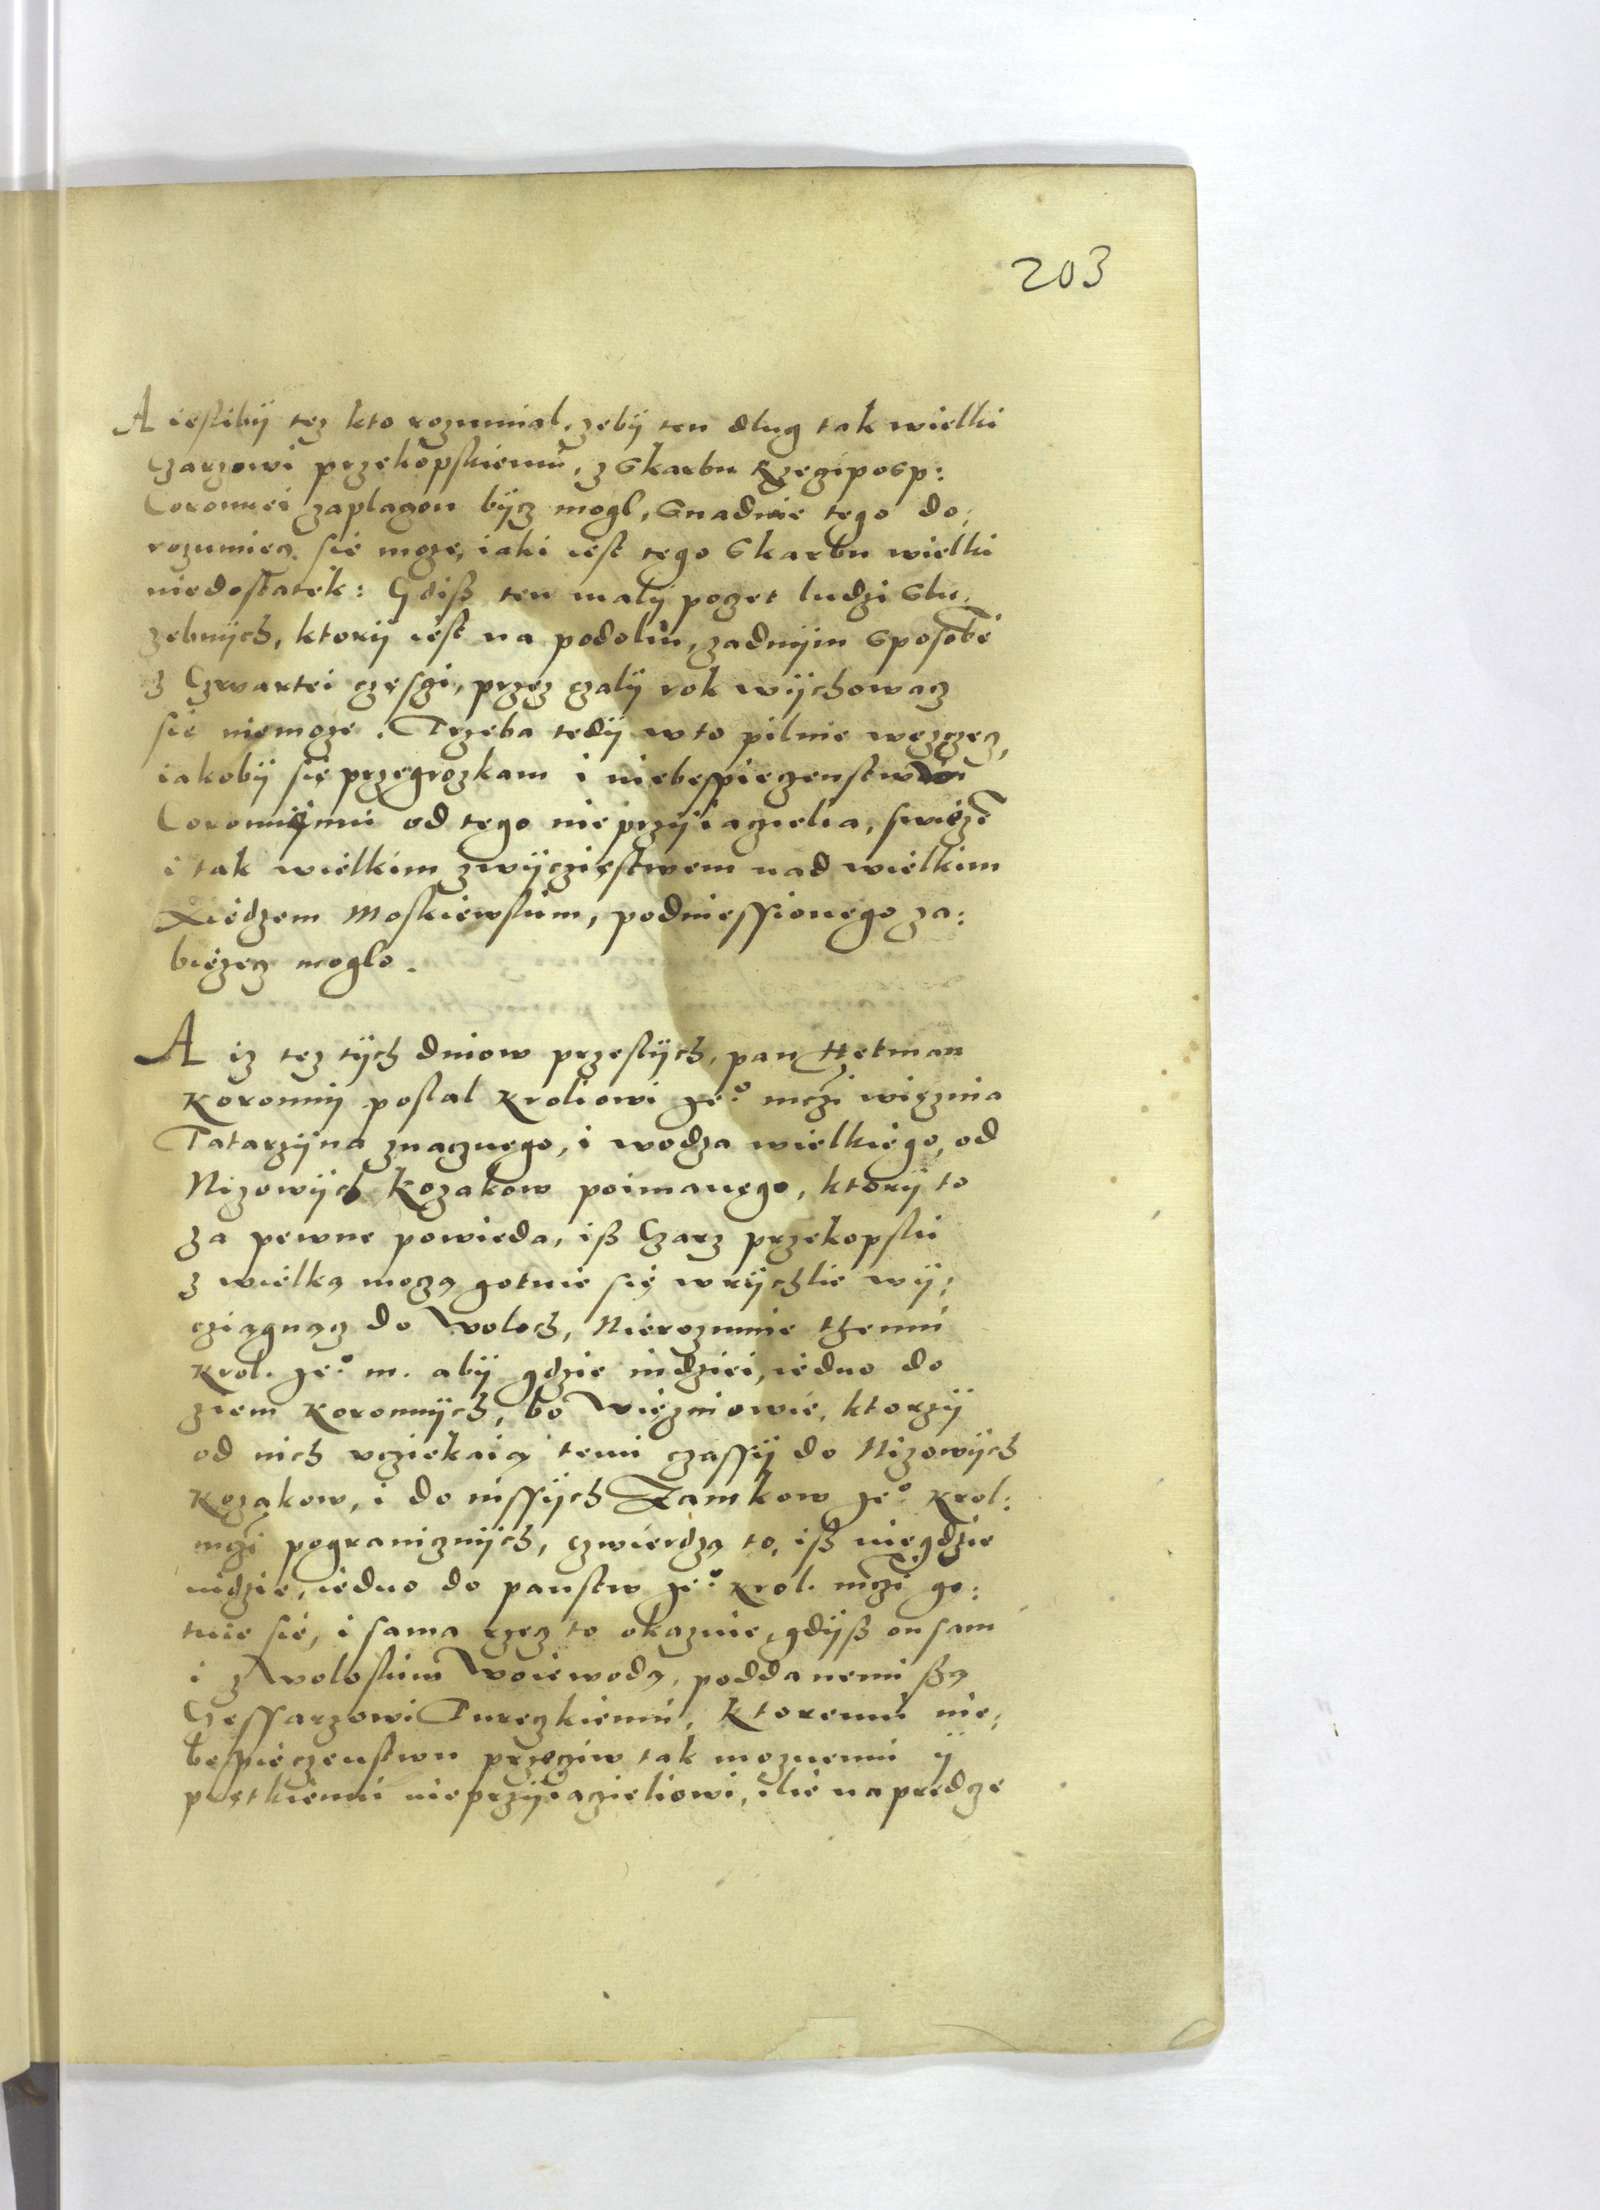 203
A iesliby tez kto rozumial, zeby ten dlug tak wielki
Czarzowi przekopskiemu, z Skarbu Rzecziposp:
Coronnei zaplaczon bycz mogl, Snadnie tego do:
rozumiecz sie moze, iaki iest tego Skarbu wielki
niedostatek: Gdiß ten maly poczet ludzi Slu:
zebnych, ktory iest na podoliu, zadnym Sposobe
z Czwartei częsczi, przez czaly rok wychowacz
sie niemoze. Trzeba tedy w to pilnie weyrzecz,
iakoby się przegrozkam i niebespieczenstwu
Coronnemu od tego nieprzyiacziela, swiezi
i tak wielkim zwyczięstwem nad wielkim
Xiedzem Moskiewskim, podniessionego za:
biezecz moglo.
A iz tez tych dniow przeslych, pan Hetman
Koronny poslal Kroliowi Jeº mczi więznia
Tatarzyna znacznego, i wodza wielkiego, od
Nizowych Kozakow poimanego, ktory to
za pewne powieda, iß Czarz przekopski
z wielką moczą gotuie się w rychlie wy:
cziągnącz do Woloch, Nierozumie themu
Krol. Jeº m. aby gdzie indziei, iedno do
ziem Koronnych, bo Więzniowie, ktorzy
od nich vcziekaią temi czassy do Nizowych
Kozakow, i do inssych Zamkow Jeº Krol:
mczi pogranicznych, czwierdzą to, iß niegdzie
indzie, iedno do panstw Jeº Krol. mczi go:
tuie sie, i sama rzecz to okazuie, gdyß on sam
i z Woloskim Woiewodą, poddanemi ßą
Czessarzowi Tureczkiemu, Ktoremu nie:
bespieczenstwu przecziw tak moznemu y
prętkiemu nieprzyiacieliowi, ilie naprędcze